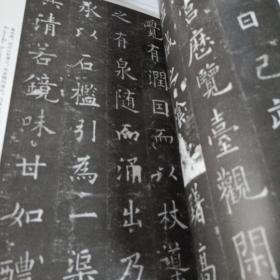 日己
宮歷覽臺觀閑
躇高
覺有潤因而以杖導
之有泉隨而涌出乃
承以石檻引為一渠
其清若鏡味甘如醴